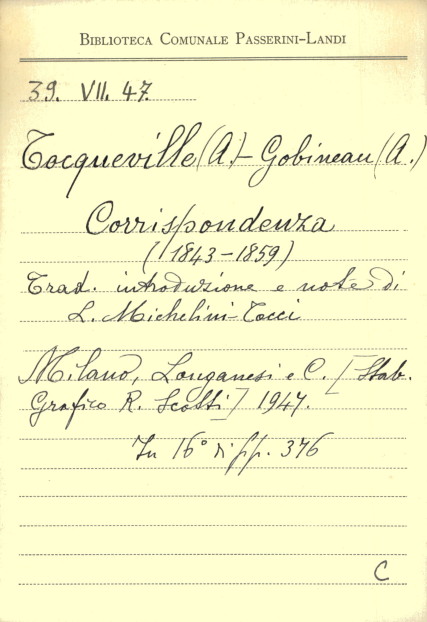 BIBLIOTECA COMUNALE PASSERINI-LANDI
39. VII. 47.
Tocqueville (A.) - Gobineau (A.)
Corrispondenza
(1843-1859)
Trad. introduzione e note di
L. Michelini-Tocci
Milano, Longanesi e C. [Stab.
Grafico R. Scotti] 1947.
In 16° di pp. 376
C